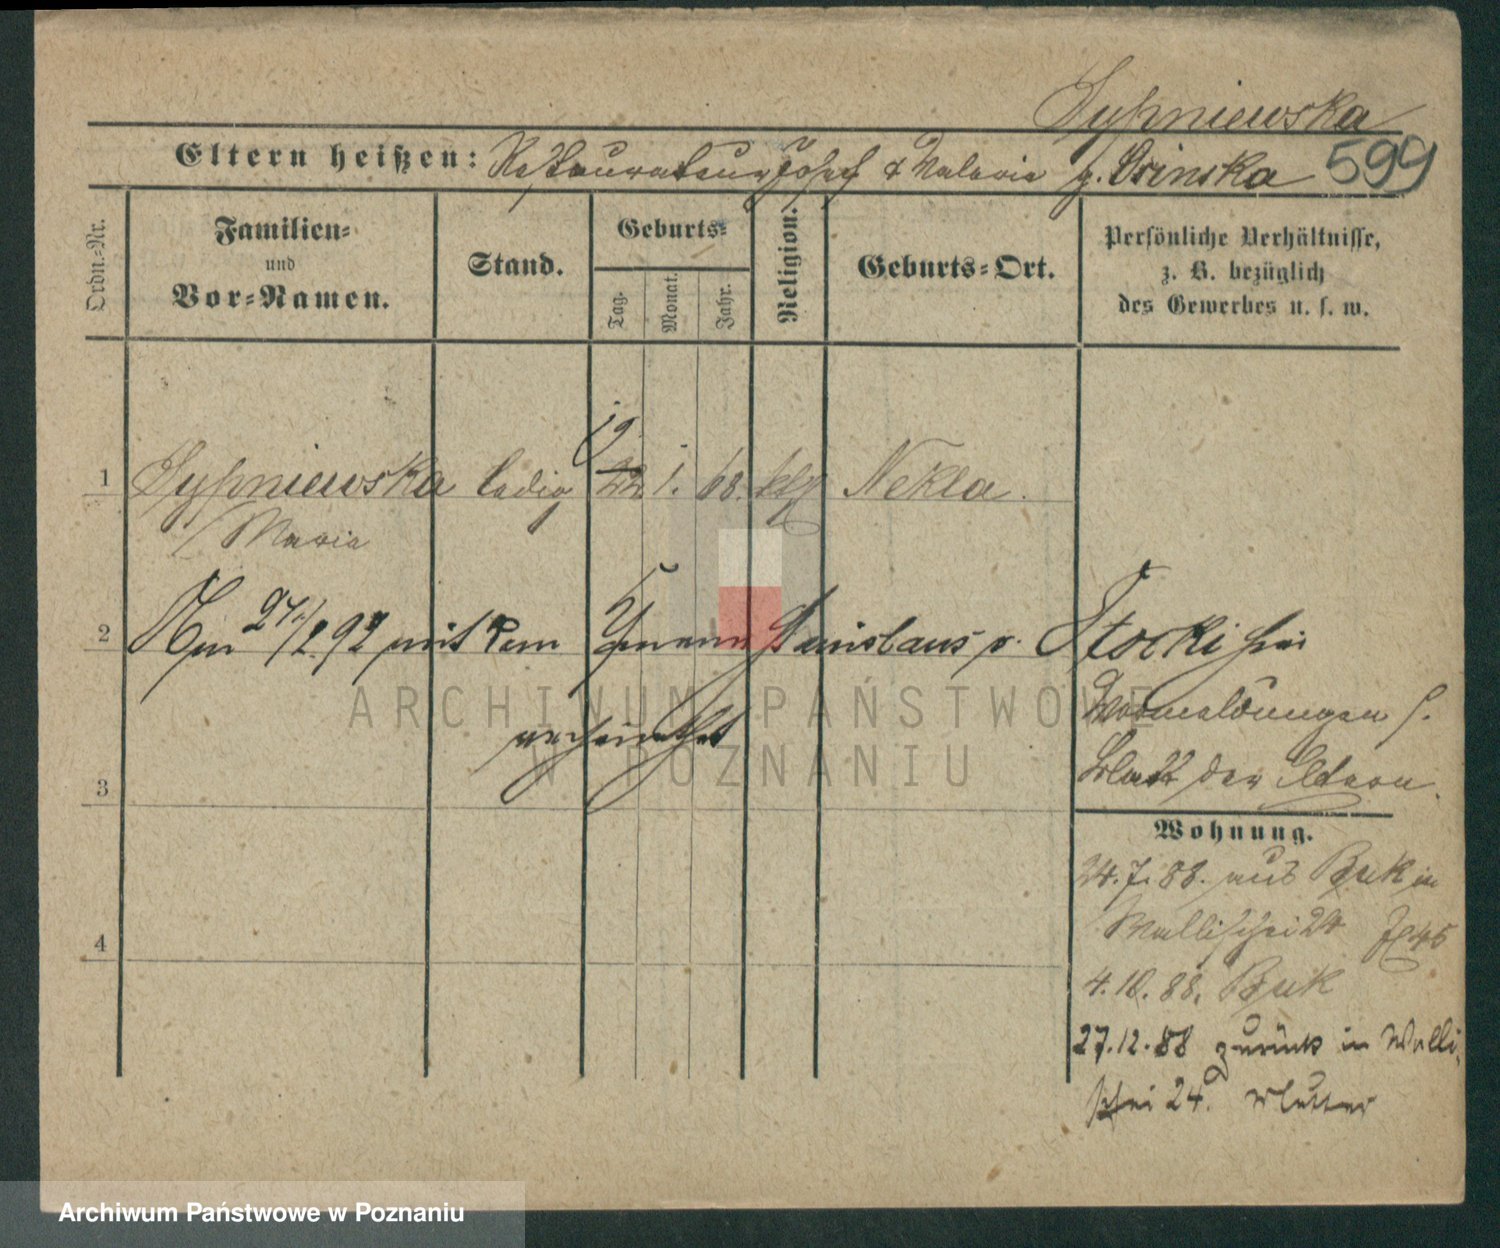 Sypniewska
Eltern heißen: Restaurateur Josef & Valerie g. Osinska 599
Ordn.-Nr.
Familien-
und
Vor-Namen.
Stand.
Geburts-
Tag.
Monat.
Jahr.
Religion.
Geburts-Ort.
Persönliche Verhältnisse,
z. B. bezüglich
des Gewerbes u. s. w.
19
1 Sypniewska ledig 22 1. 68. kth Nekla.
Maria
2 Am 27/2.92 mit dem Stanislaus v. Stocki hier
verheirathet
Vormeldungen s.
Blatt der Eltern.
3
Wohnung.
24.7.88. aus Buk in
Wallischei 24
4.10.88. Buk
4
27.12.88 zurück in Walli-
schei 24. Mutter
ARCHIWUM PAŃSTWOWE
W POZNANIU
Archiwum Państwowe w Poznaniu